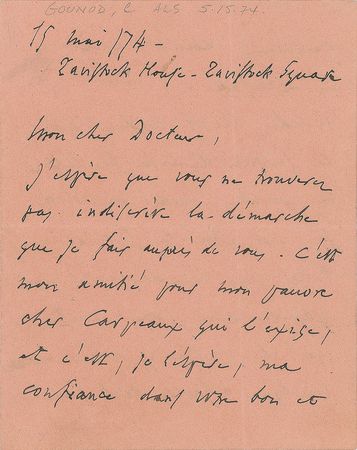 GOUNOD, C ALS 5.15.74.
15 mai /74 -
Tavistock House - Tavistock Square
Mon cher Docteur,
J'espère que vous ne trouverez
pas indiscrète la démarche
que je fais auprès de vous. C'est
mon amitié pour mon pauvre
cher Carpeaux qui l'exige,
et c'est, je l'espère, ma
confiance dans votre bon et